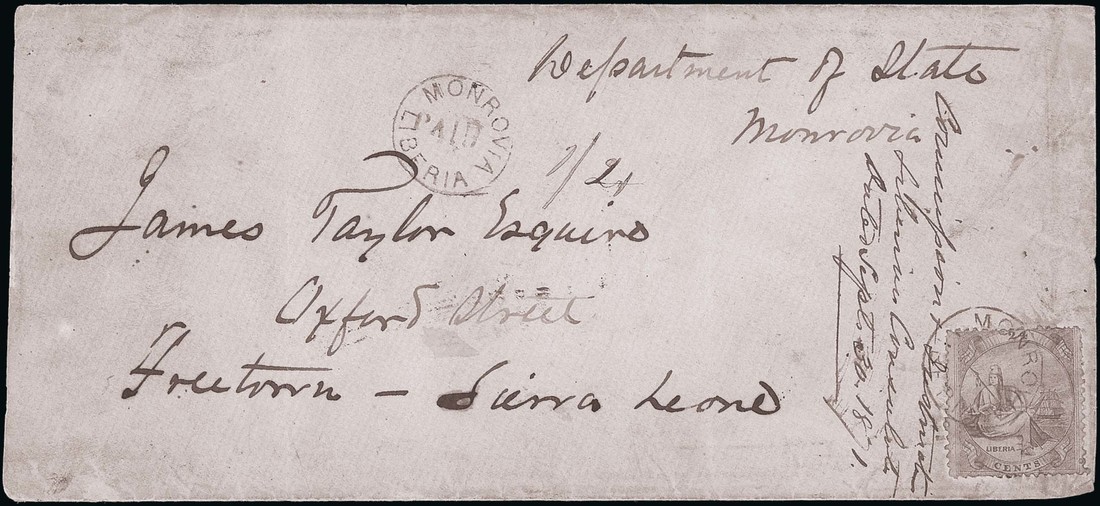 Department of State
Monrovia
MONROVIA
PAID
LIBERIA
1/2
James Taylor Esquire
Oxford Street
Freetown – Sierra Leone
Liberian Consulate
Dated Septr 1871.
MONRO
LIBERIA
CENTS